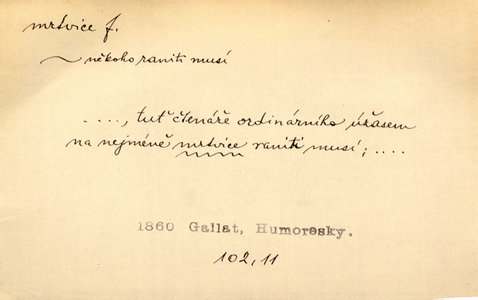 mrtvice f.
~ někoho raniti musí
...., tuť čtenáře ordinárního úžasem
na nejméně mrtvice raniti musí; ....
1860 Gallat, Humoresky.
102,11